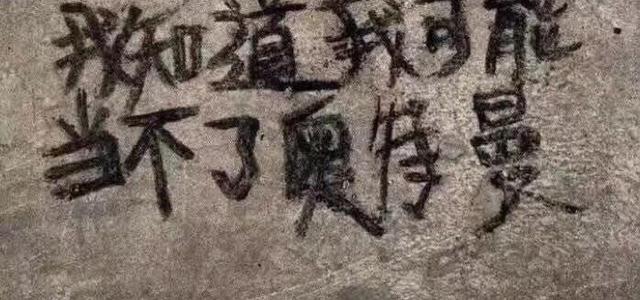 我知道我可能
当不了奥特曼